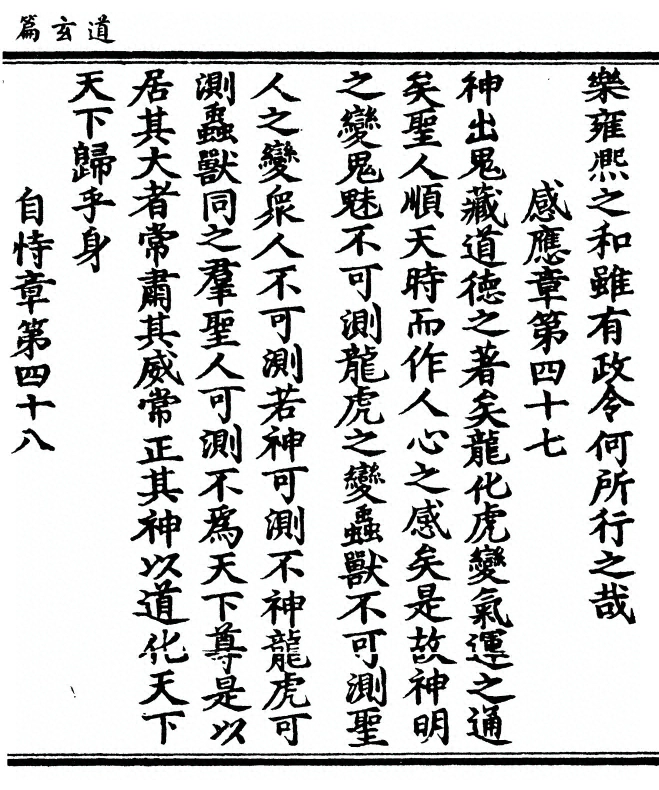 道玄篇
樂雍熙之和雖有政令何所行之哉
感應章第四十七
神出鬼藏道德之著矣龍化虎變氣運之通
矣聖人順天時而作人心之感矣是故神明
之變鬼魅不可測龍虎之變蟲獸不可測聖
人之變衆人不可測若神可測不神龍虎可
測蟲獸同之羣聖人可測不爲天下尊是以
居其大者常肅其威常正其神以道化天下
天下歸乎身
自恃章第四十八